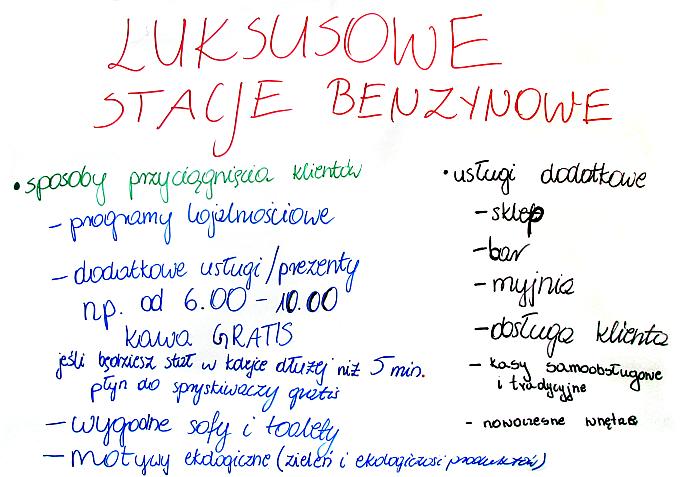 LUKSUSOWE
STACJE BENZYNOWE
• sposoby przyciągnięcia klientów
– programy lojalnościowe
– dodatkowe usługi/prezenty
np. od 6.00 – 10.00
kawa GRATIS
jeśli będziesz stał w kolejce dłużej niż 5 min.
płyn do spryskiwaczy gratis
– wygodne sofy i toalety
– motywy ekologiczne (zieleń i ekologiczność produktów)
• usługi dodatkowe
– sklep
– bar
– myjnia
– obsługa klienta
– kasy samoobsługowe
i tradycyjne
- nowoczesne wnętrze